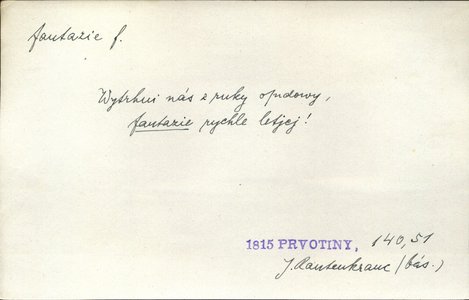 fantazie f.
Wytrhni nás z ruky opdowy,
fantazie rychle letjcj!
1815 PRVOTINY, 140,51
J. Rautenkranc (bás.)